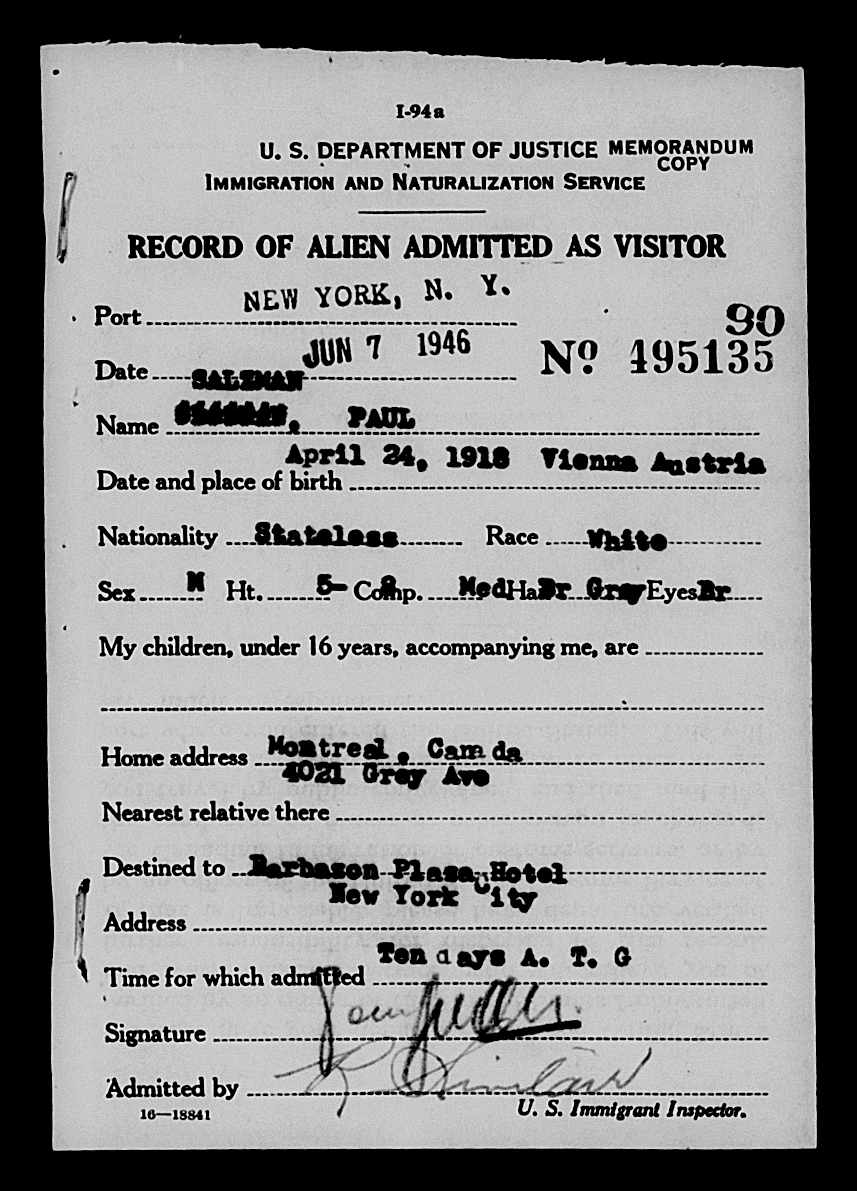 I-94a
U. S. DEPARTMENT OF JUSTICE MEMORANDUM
COPY
IMMIGRATION AND NATURALIZATION SERVICE
RECORD OF ALIEN ADMITTED AS VISITOR
Port NEW YORK, N. Y.
90
Date JUN 7 1946 Nº 495135
SALZMAN
Name , PAUL
April 24, 1918 Vienna Austria
Date and place of birth
Nationality Stateless Race White
Sex M Ht. 5-8 Comp. Med Hair Gray Eyes Br
My children, under 16 years, accompanying me, are
Home address Montreal, Canada
4021 Grey Ave
Nearest relative there
Destined to Barbason Plaza Hotel
New York City
Address
Ten days A. T. G
Time for which admitted
Signature
Admitted by Sinclair
16—18841 U. S. Immigrant Inspector.